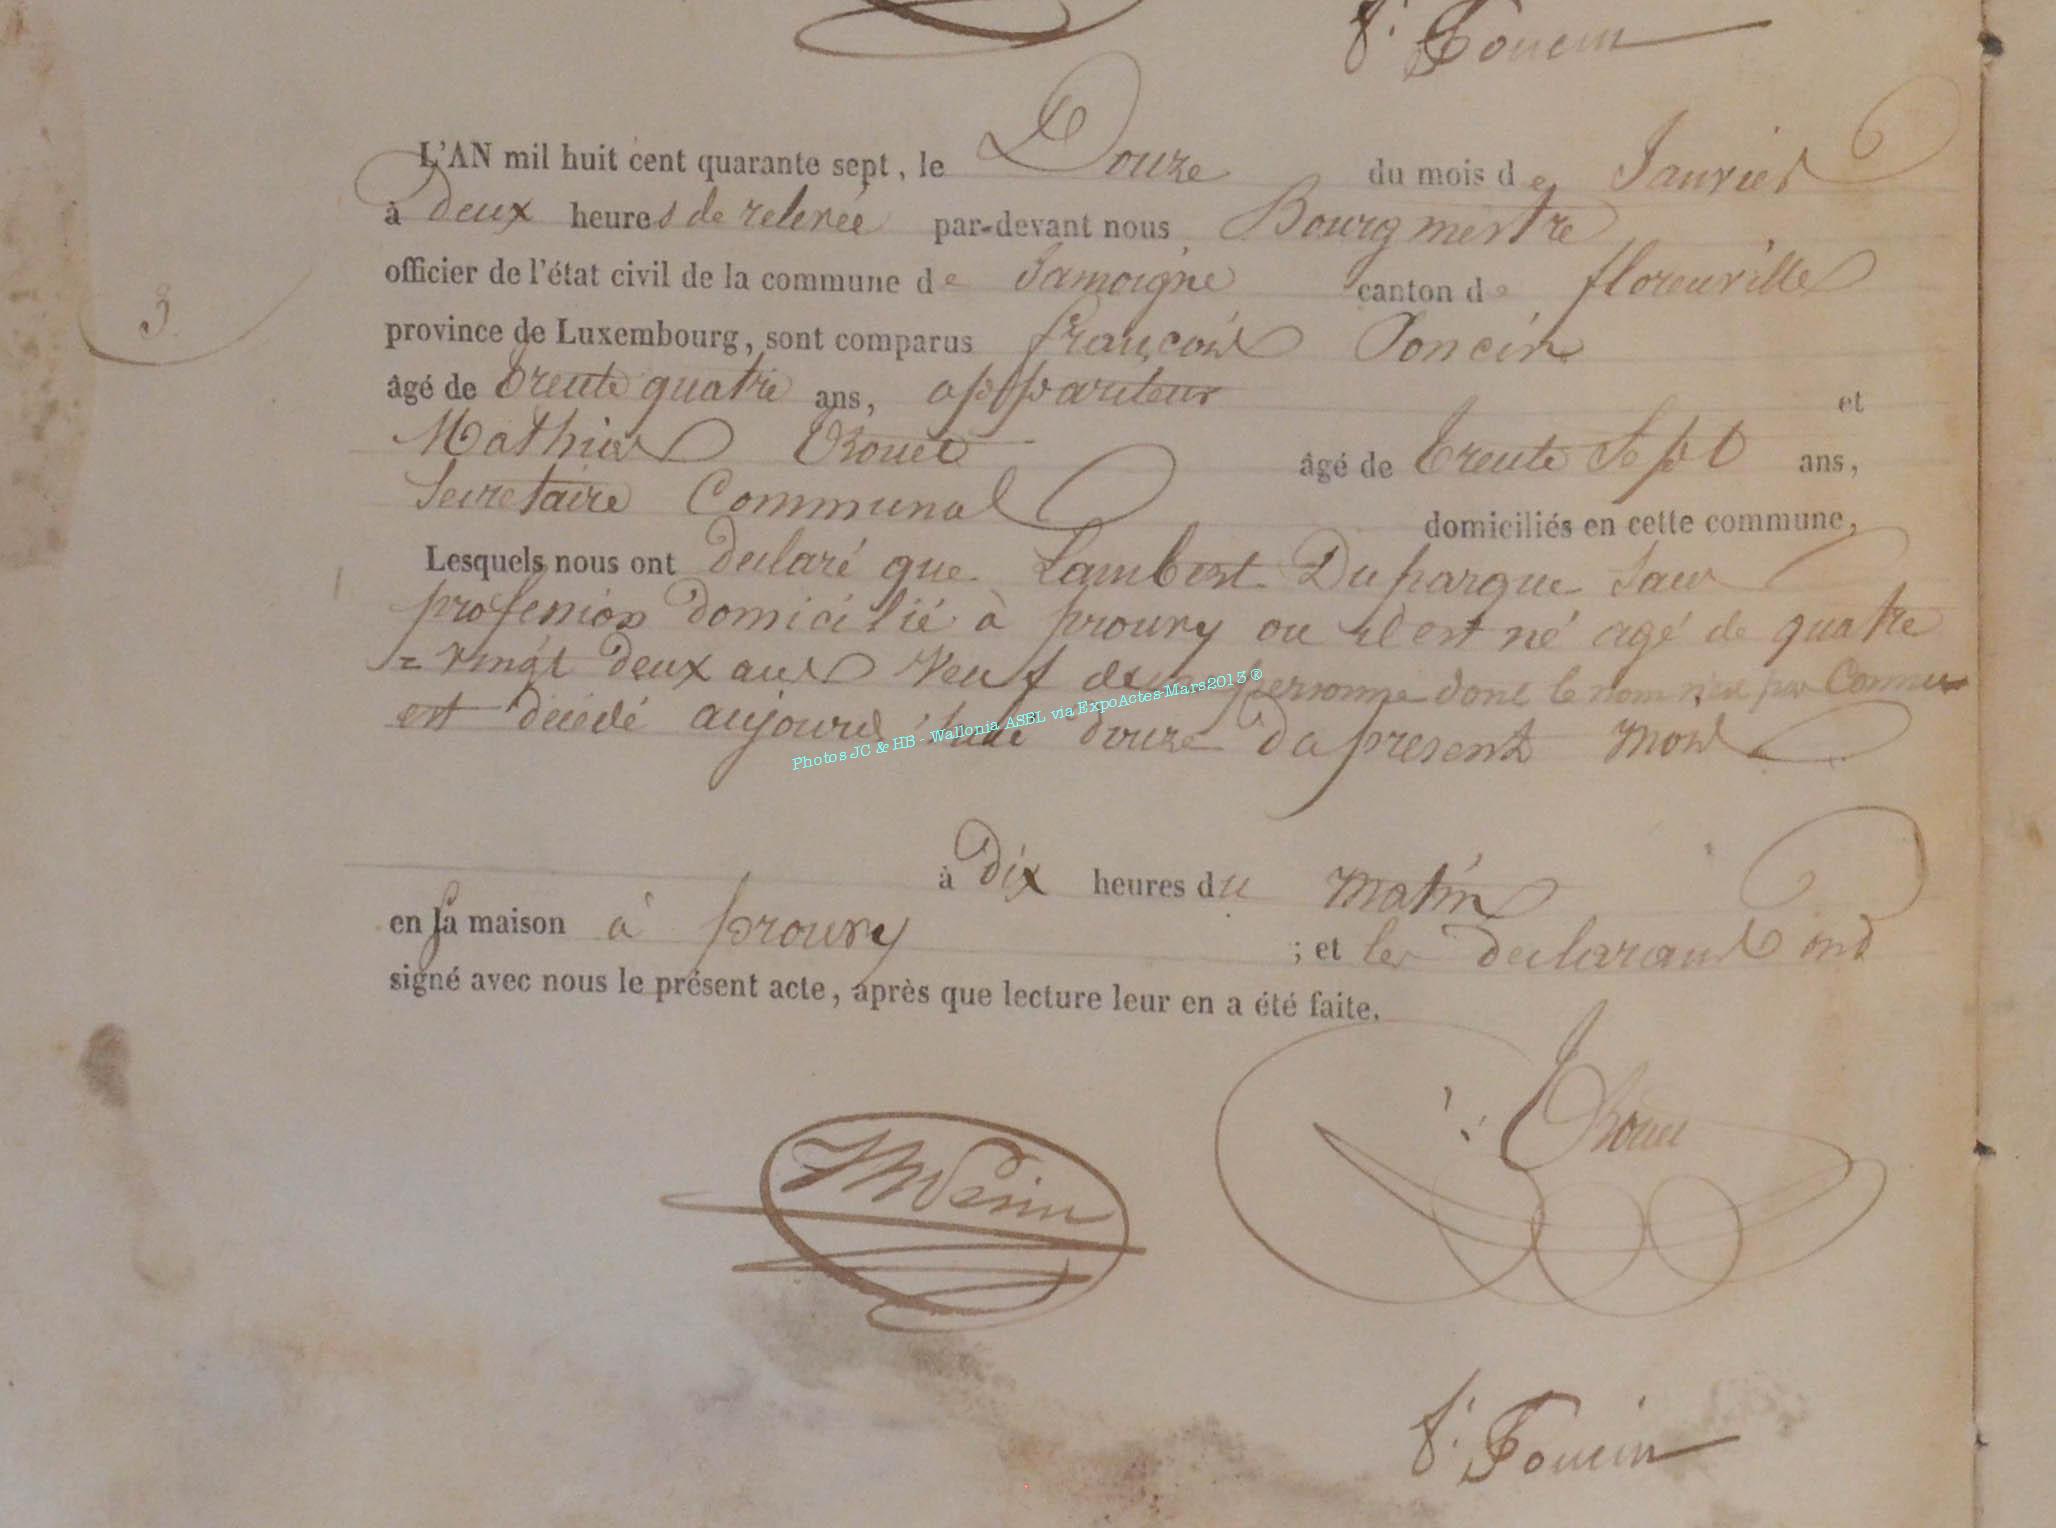 f. Poncin
L'AN mil huit cent quarante sept, le Douze du mois de Janvier
à deux heures de relevée par-devant nous Bourgmestre
officier de l'état civil de la commune de Jamoigne canton de florenville
3
province de Luxembourg, sont comparus françois Poncin
âgé de trente quatre ans, appariteur et
Mathieu Thouet âgé de trente Sept ans,
Secretaire Communal domiciliés en cette commune,
Lesquels nous ont declaré que Lambert Duparque Sans
profession domicilié à prouvy ou il est né agé de quatre
=vingt deux ans Veuf d'une personne dont le nom n'est pas Connu
est décédé aujourd'hui douze du present mois
Photos JC & HB - Wallonia ASBL via ExpoActes-Mars2013®
à dix heures du matin
en sa maison à prouvy ; et les declarans ont
signé avec nous le présent acte, après que lecture leur en a été faite.
Thouet
f. Poncin